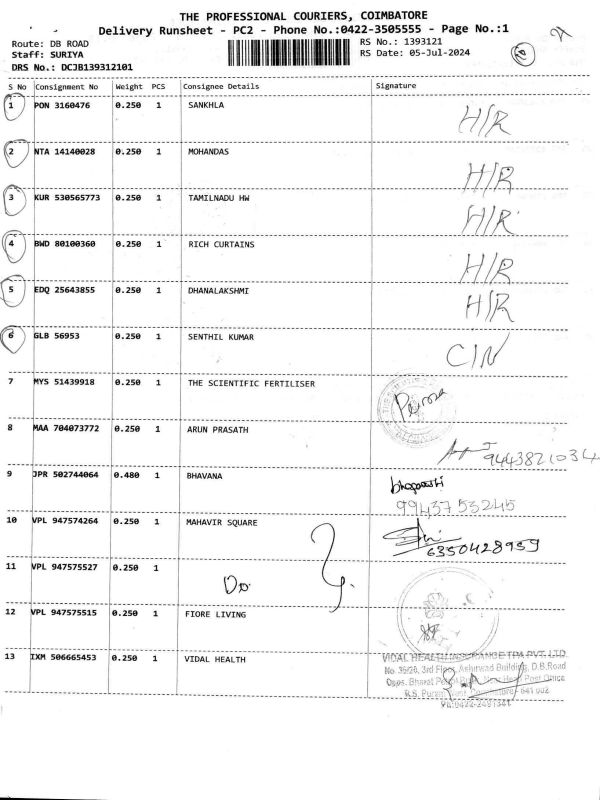 THE PROFESSIONAL COURIERS, COIMBATORE
Delivery Runsheet - PC2 - Phone No.:0422-3505555 - Page No.:1
Route: DB ROAD RS No.: 1393121
Staff: SURIYA RS Date: 05-Jul-2024
DRS No.: DCJB139312101
S No Consignment No Weight PCS Consignee Details Signature
1 PON 3160476 0.250 1 SANKHLA H/R
2 NTA 14140028 0.250 1 MOHANDAS H/R
3 KUR 530565773 0.250 1 TAMILNADU HW H/R
4 BWD 80100360 0.250 1 RICH CURTAINS H/R
5 EDQ 25643855 0.250 1 DHANALAKSHMI H/R
6 GLB 56953 0.250 1 SENTHIL KUMAR C/N
7 MYS 51439918 0.250 1 THE SCIENTIFIC FERTILISER
8 MAA 704073772 0.250 1 ARUN PRASATH 9443821034
9 JPR 502744064 0.480 1 BHAVANA
99437 53245
10 VPL 947574264 0.250 1 MAHAVIR SQUARE
6350428959
11 VPL 947575527 0.250 1 Do
12 VPL 947575515 0.250 1 FIORE LIVING
13 IXM 506665453 0.250 1 VIDAL HEALTH
VIDAL HEALTH INSURANCE TPA PVT. LTD
No. 3rd Floor, Ashirwad Building, D.B.Road
Opps. Bharat Head Post Office
R.S. Puram Coimbatore - 641 002